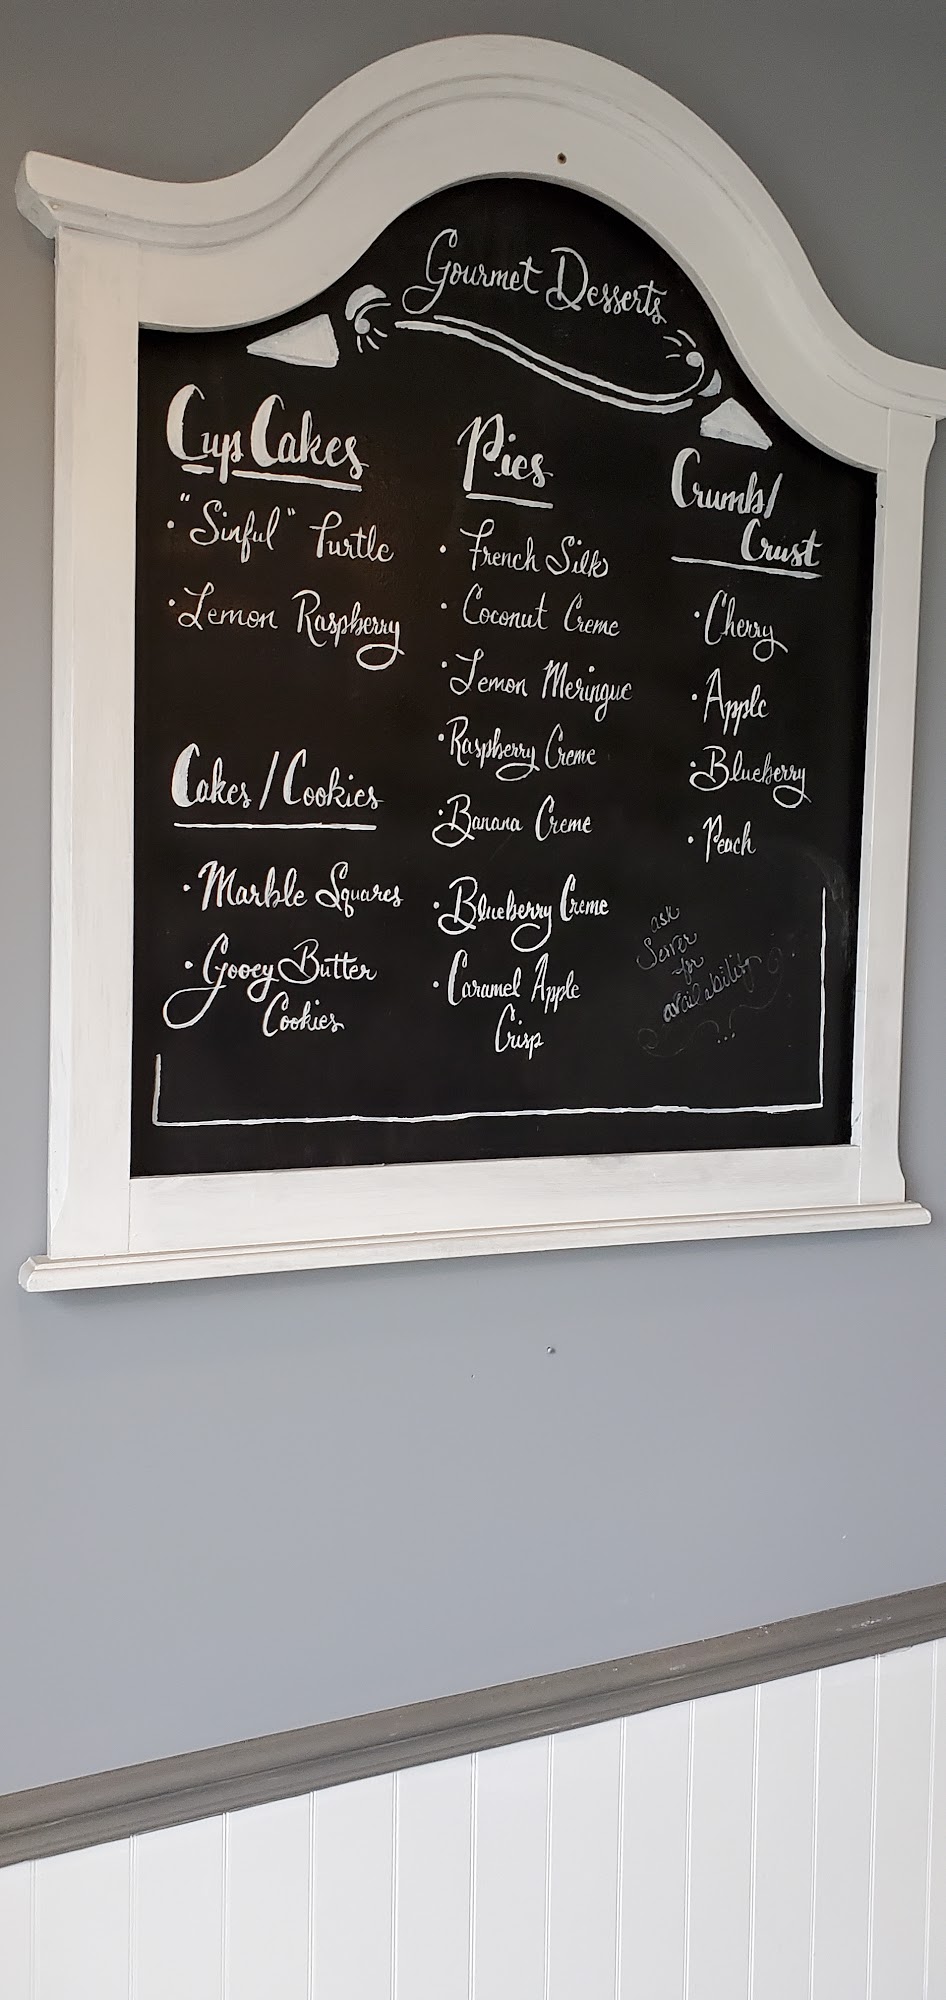 Gourmet Desserts
Cup Cakes
• "Sinful" Turtle
• Lemon Raspberry
Cakes / Cookies
• Marble Squares
• Gooey Butter
Cookies
Pies
• French Silk
• Coconut Creme
• Lemon Meringue
• Raspberry Creme
• Banana Creme
• Blueberry Creme
• Caramel Apple
Crisp
Crumb/
Crust
• Cherry
• Apple
• Blueberry
• Peach
ask
Server
for
availability
...